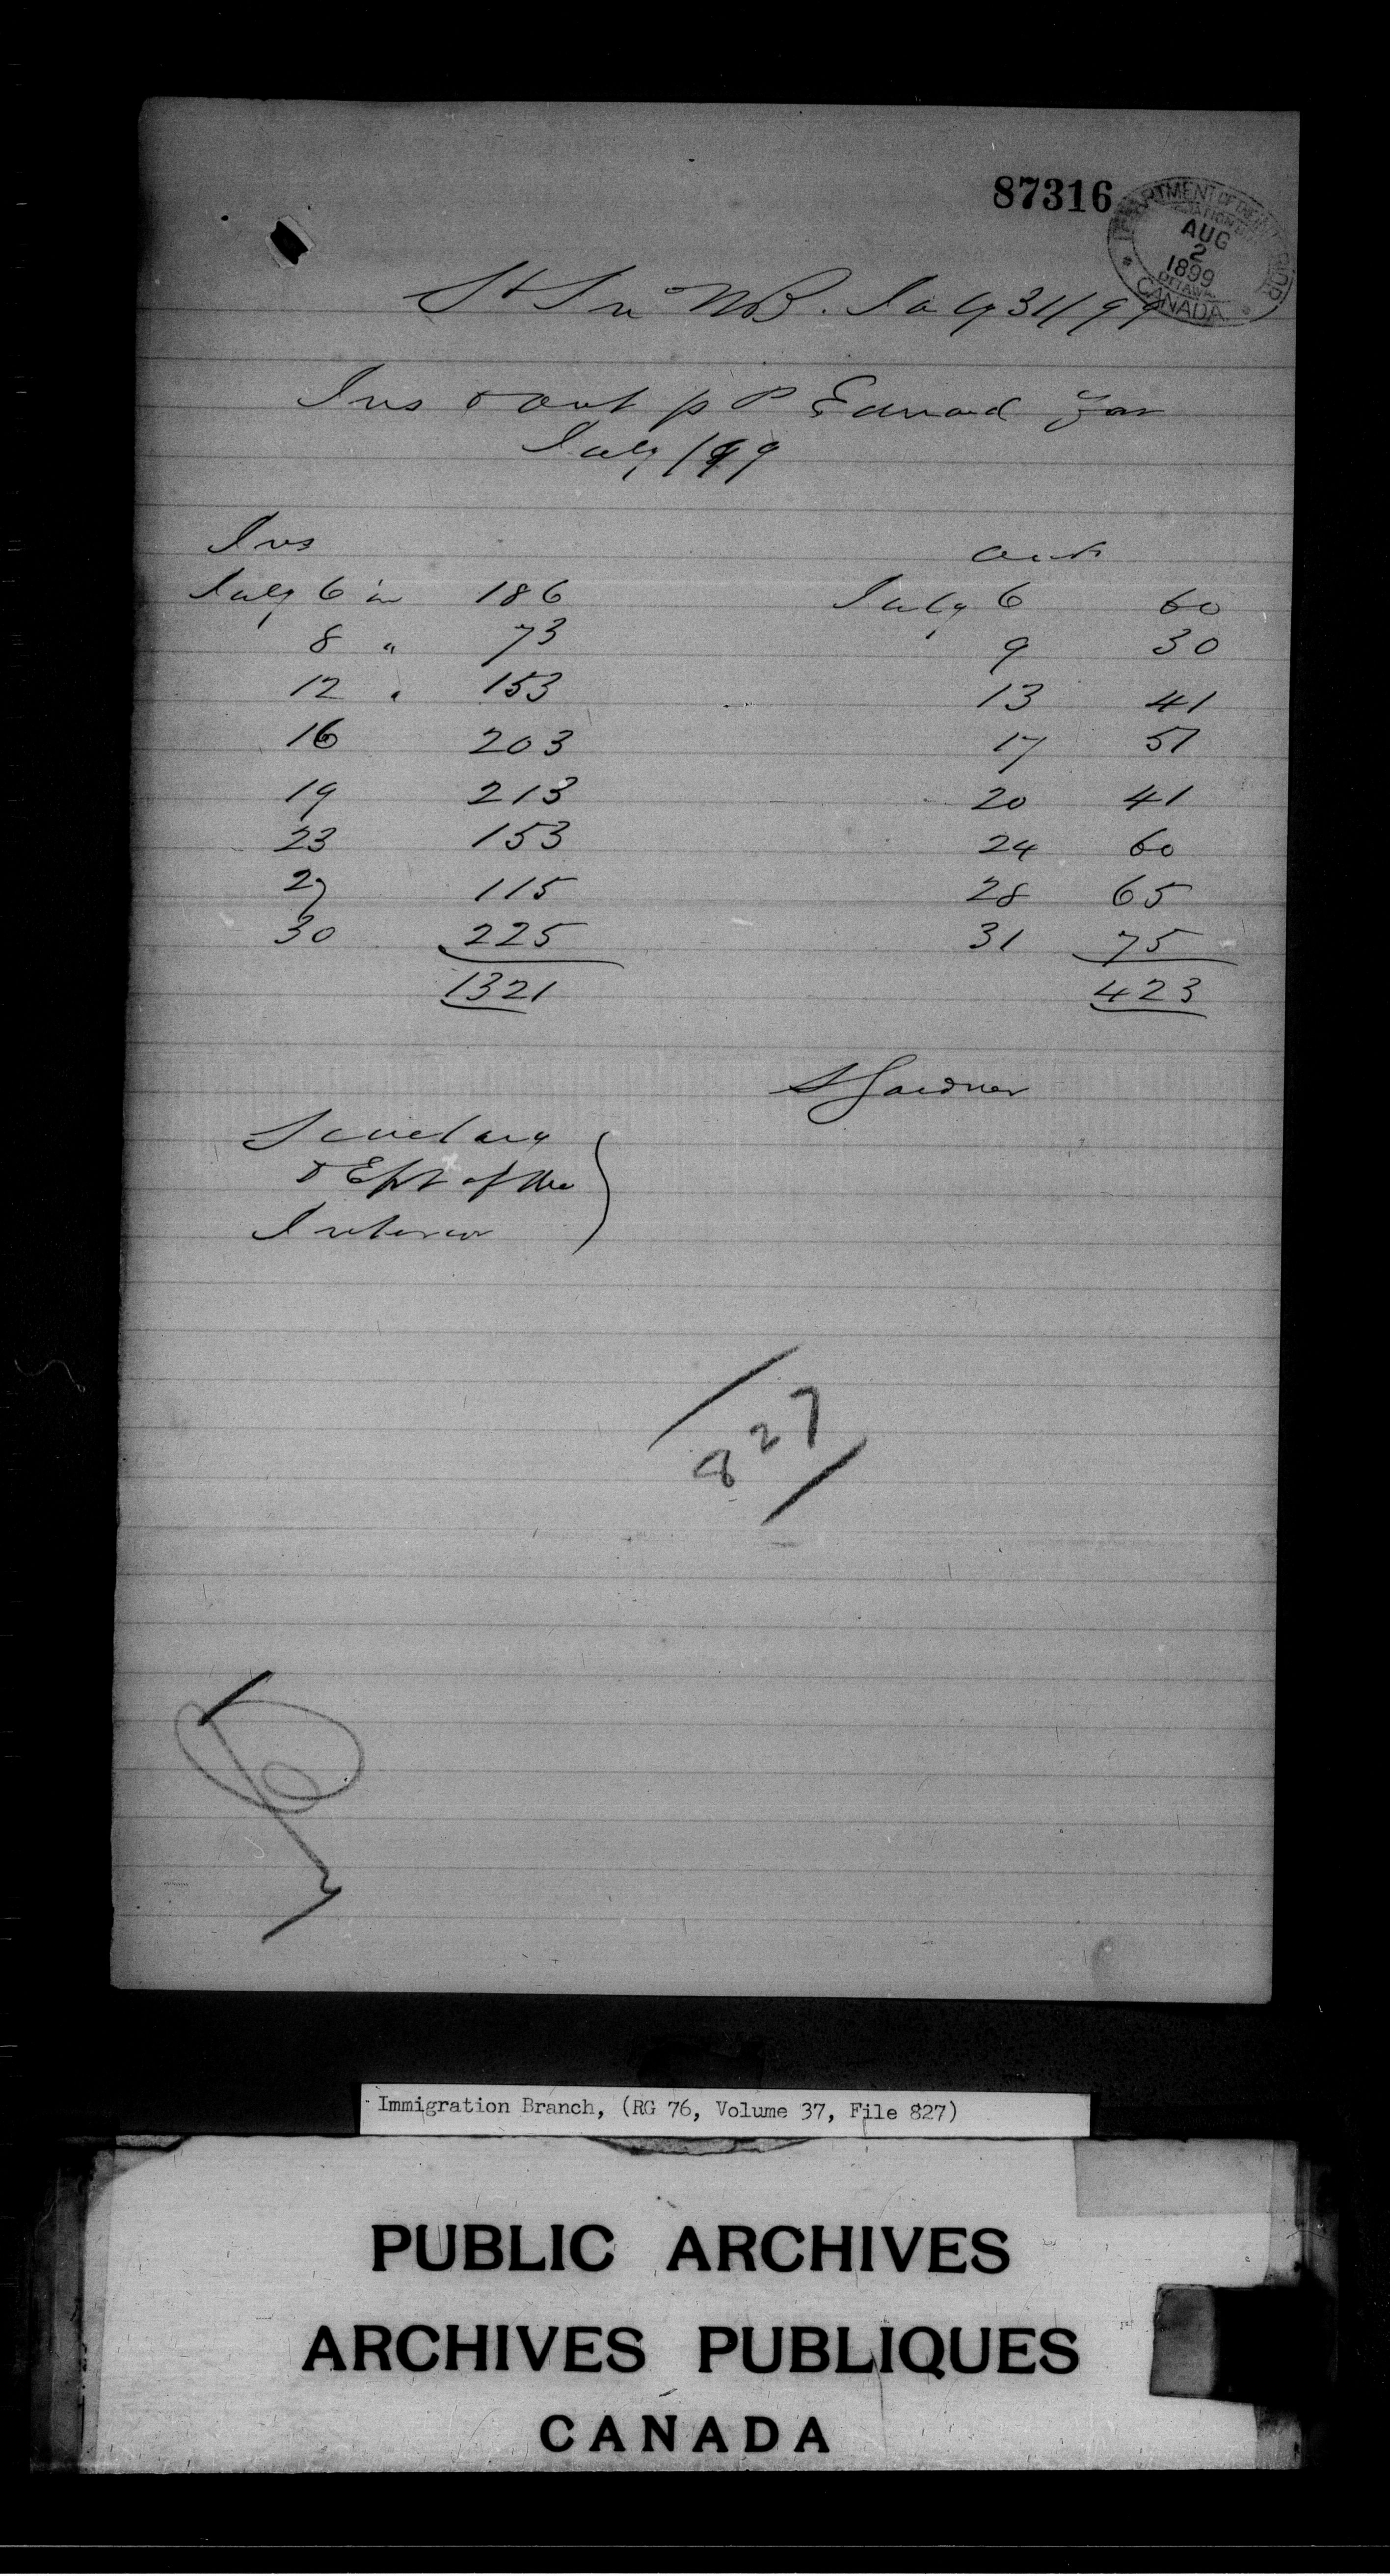 87316
DEPARTMENT OF THE INTERIOR
AUG
2
1899
OTTAWA
CANADA
St Jn NB. July 31/99
Ins & out p P Edward for
July /99
Ins
out
July 6 in 186 July 6 60
8 " 73 9 30
12 " 153 13 41
16 203 17 51
19 213 20 41
23 153 24 60
27 115 28 65
30 225 31 75
1321 423
S Gardner
Secretary
DEpt of the
Interior
827
Immigration Branch, (RG 76, Volume 37, File 827)
PUBLIC ARCHIVES
ARCHIVES PUBLIQUES
CANADA